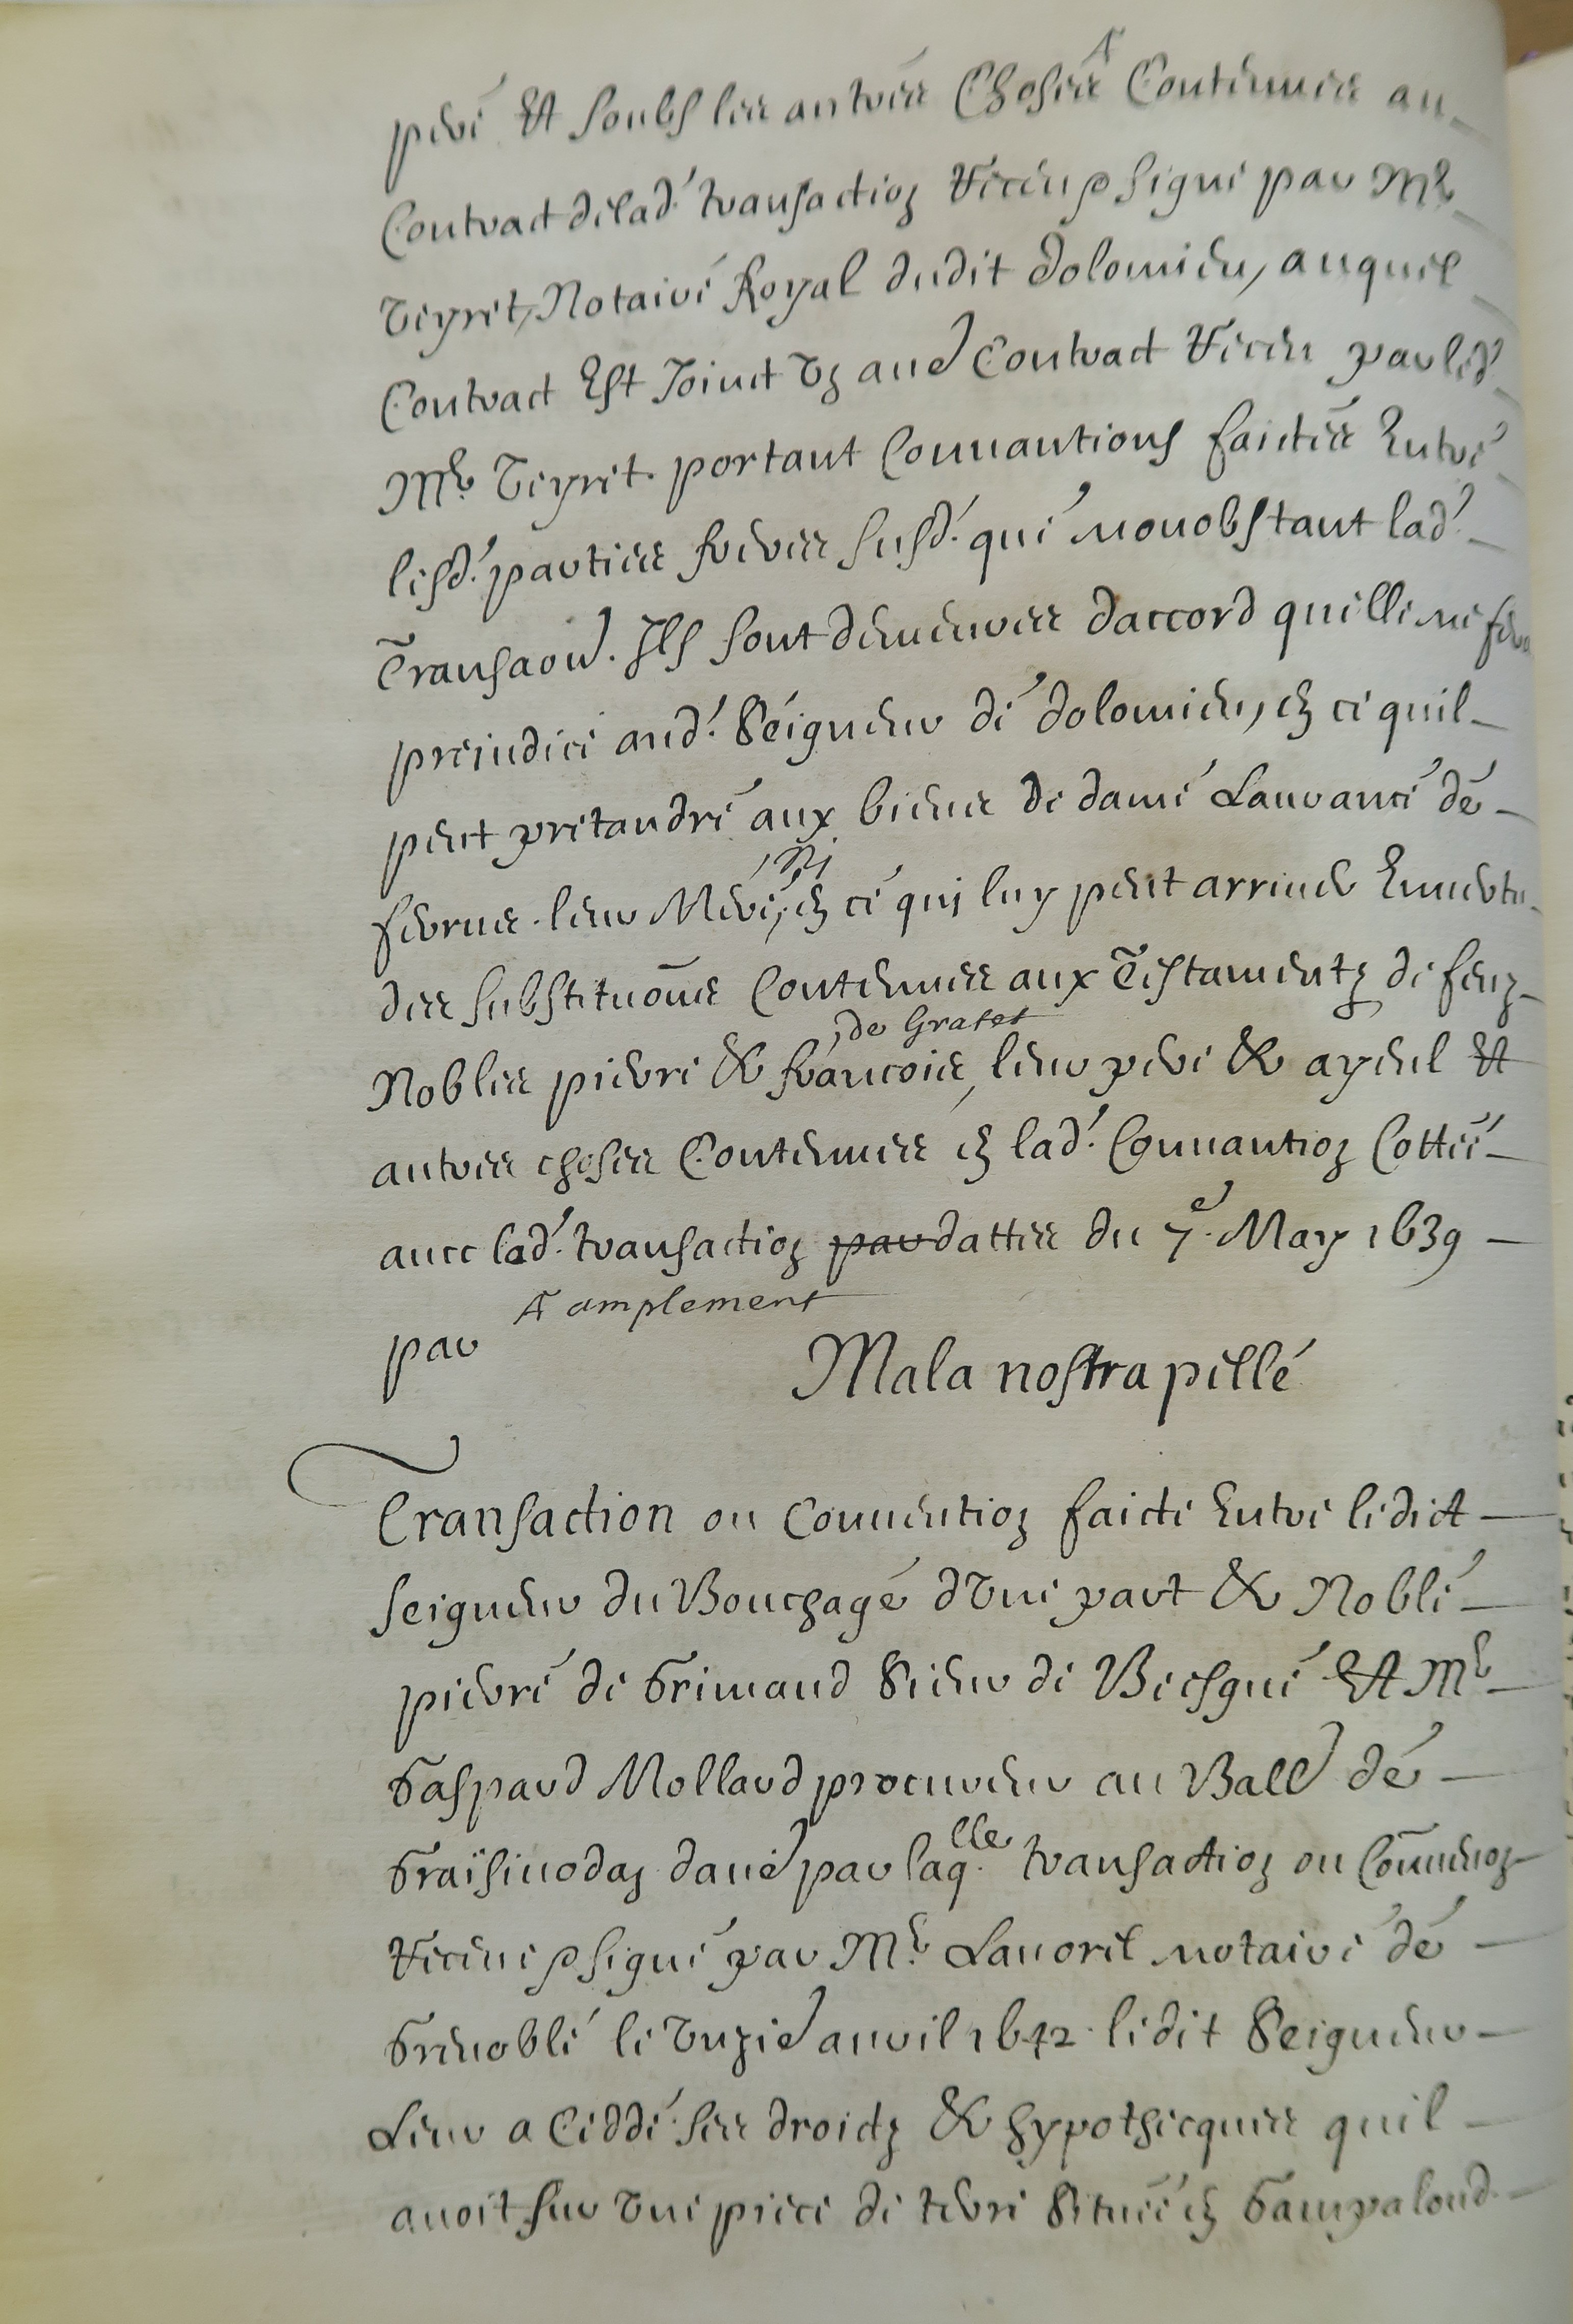 pere et soubs les autres choses contenues au
contract de lad. transaction receu & signé par Me
Teyret, Notaire Royal dudit dolomieu, auquel
contract est joinct un autre contract receu par led.
Me Teyret portant convantions faictes entre
lesd. parties freres susd. que nonobstant lad.
Transaon. Ils sont demeures daccord quelle ne fera
prejudice aud. Seigneur de dolomieu, en ce quil
peut pretandre aux biens de dame Laurance de
ferrus leur Mere, ny en ce qui luy peut arriver en vertu
des substituons contenues aux Testamentz de feuz
Nobles pierre & francois de Gratet, leur pere & ayeul et
autres choses contenues en lad. Convantion Cottée
avec lad. transaction par dattes du 7e May 1639
par
amplement
Mala nostra pellé
Transaction ou convention faicte entre ledict
seigneur du Bouchage d'une part & Noble
pierre de Grimaud Sieur de Beesgue et Me
Gaspard Mollard procureur au Ball de
Graisivodan daue par laqlle transaction ou Convenon
receue & signé par Me Lavorel notaire de
Grenoble le unzie avril 1642 ledit Seigneur
Leur a ceddé ses droictz & hypothecques quil
avoit sur une piece de terre située en Gampaloud